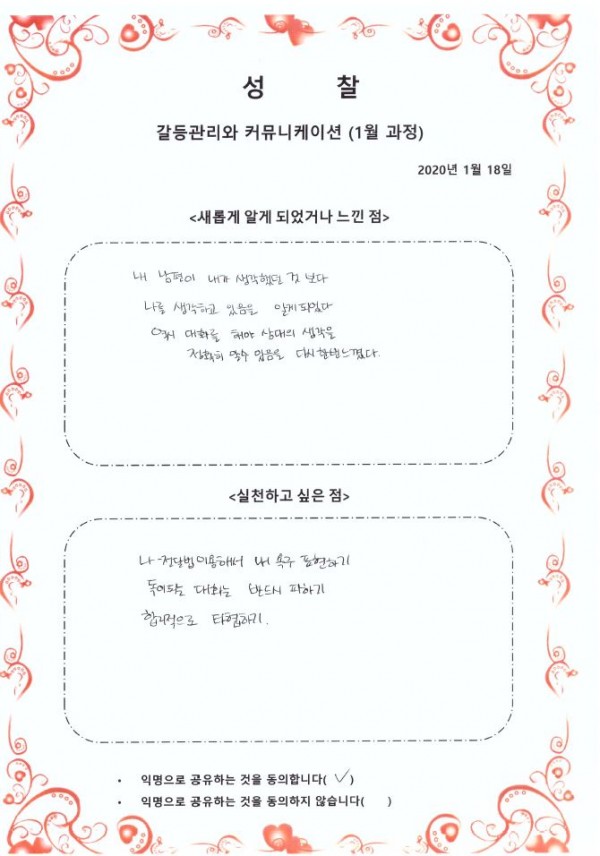 성 찰
갈등관리와 커뮤니케이션 (1월 과정)
2020년 1월 18일
<새롭게 알게 되었거나 느낀 점>
내 남편이 내가 생각했던 것 보다
나를 생각하고 있음을 알게되었다
역시 대화를 해야 상대의 생각을
정확히 알수 있음을 다시한번느꼈다.
<실천하고 싶은 점>
나-전달법이용해서 내 욕구 표현하기
대화는 반드시 피하기
합리적으로 타협하기.
• 익명으로 공유하는 것을 동의합니다( ✓ )
• 익명으로 공유하는 것을 동의하지 않습니다( )